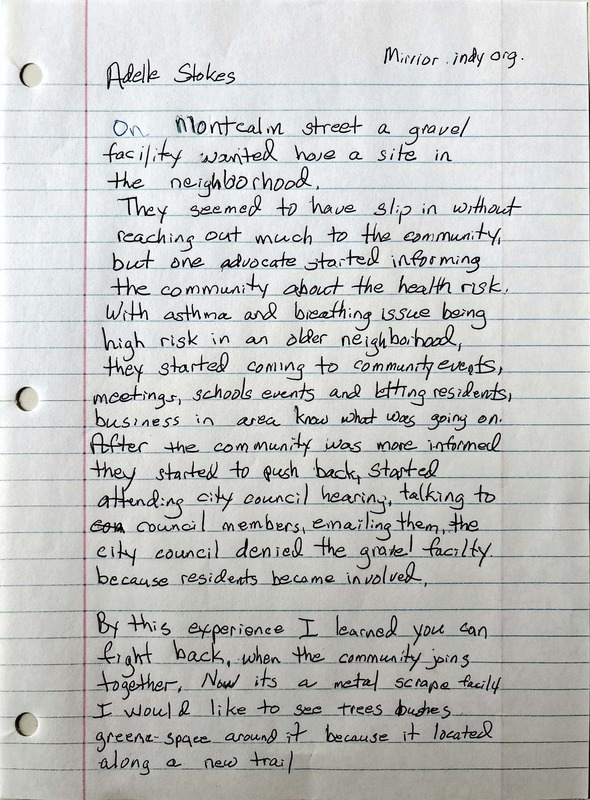 Mirrior.indy org.
Adelle Stokes
On Montcalm street a gravel
facility wanted have a site in
the neighborhood.
They seemed to have slip in without
reaching out much to the community,
but one advocate started informing
the community about the health risk.
With asthma and breathing issue being
high risk in an older neighborhood,
they started coming to community events,
meetings, schools events and letting residents,
business in area know what was going on.
After the community was more informed
they started to push back, started
attending city council hearing, talking to
council members, emailing them, the
city council denied the gravel facilty.
because residents became involved,
By this experience I learned you can
fight back, when the community joins
together, Now its a metal scrape facily
I would like to see trees bushes
greene-space around it because it located
along a new trail